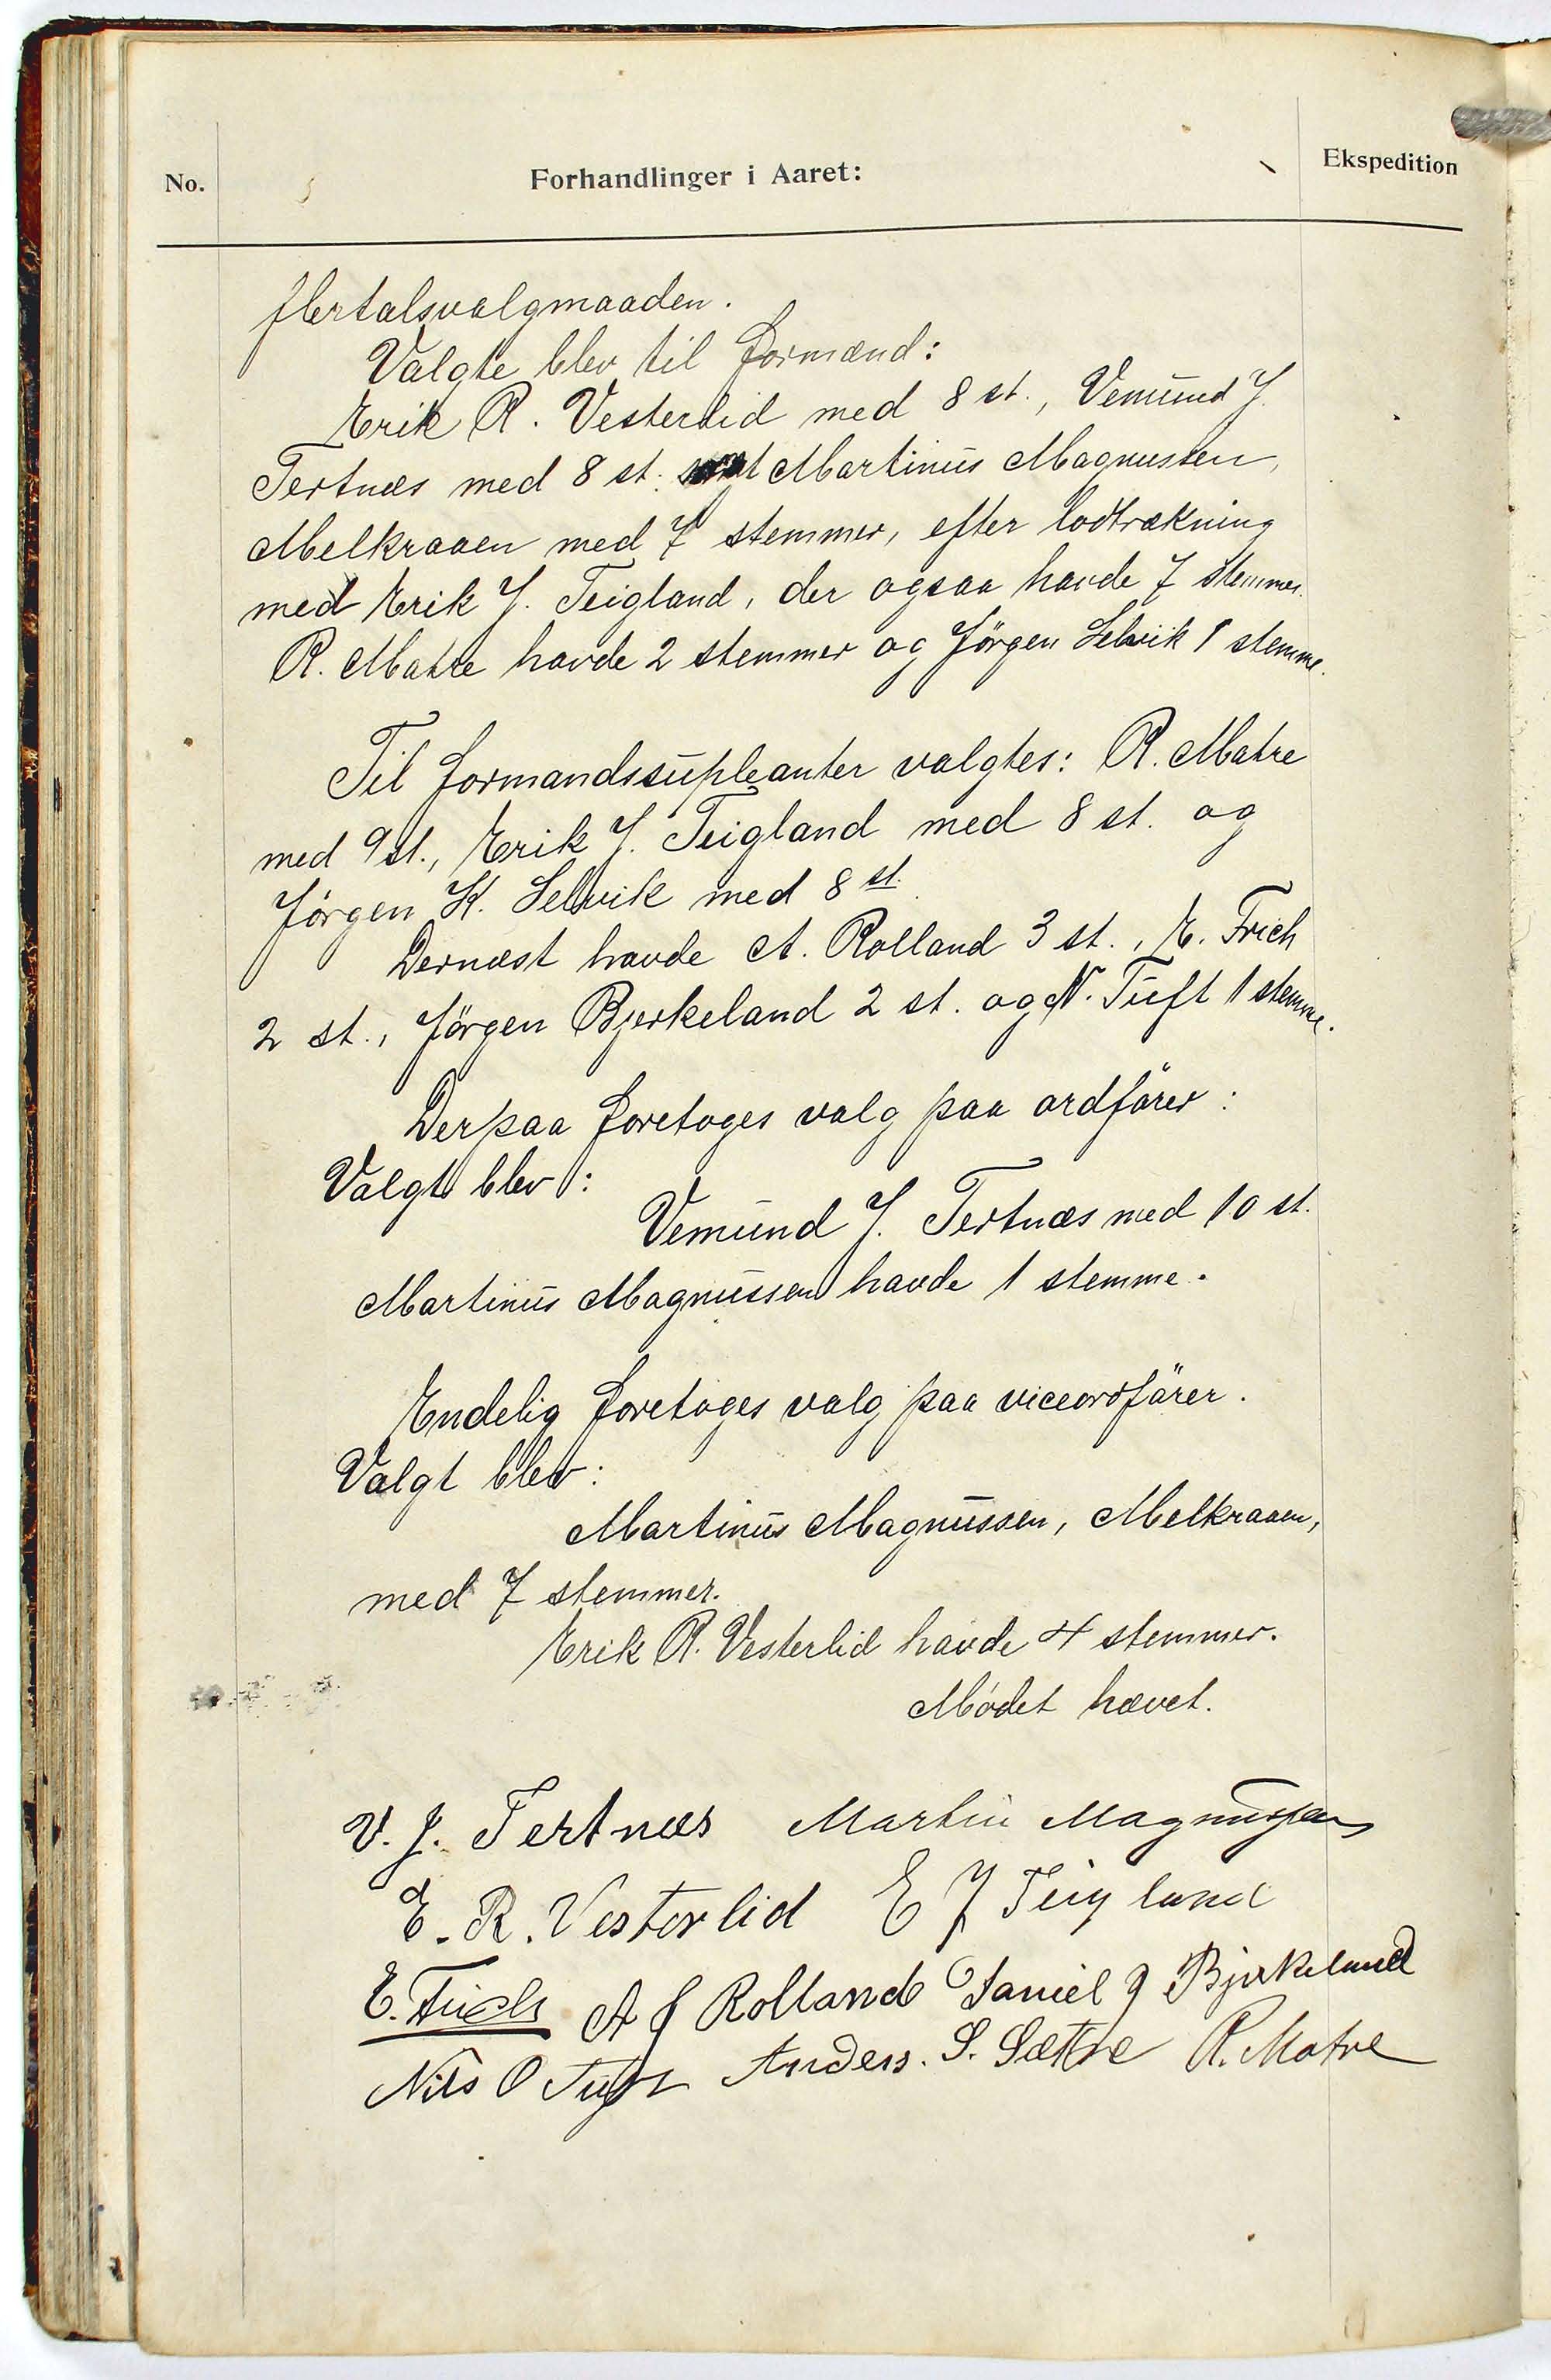 No.
Forhandlinger i Aaret:
Ekspedition
flertalsvalgmaaden.
Valgte blev til formænd:
Erik R. Vesterlid med 8 st., Vemund J.
Tertnæs med 8 st. samt Martinus Magnussen,
Melkraaen med 7 stemmer, efter lodtrækning
med Erik J. Teigland, der ogsaa havde 7 stemmer.
R. Matre havde 2 stemmer og Jörgen Selvik 1 stemme.
Til formandssupleanter valgtes: R. Matre
med 9 st., Erik J. Teigland med 8 st. og
Jörgen K. Selvik med 8 st.
Dernæst havde A. Rolland 3 st., E. Frich
2 st., Jörgen Bjerkeland 2 st. og N. Tuft 1 stemme.
Derpaa foretoges valg paa ordförer:
Valgt blev:
Vemund J. Tertnæs med 10 st.
Martinus Magnussen havde 1 stemme.
Endelig foretoges valg paa viceordförer.
Valgt blev:
Martinus Magnussen, Melkraaen,
med 7 stemmer.
Erik R. Vesterlid havde 4 stemmer.
Mödet hævet.
V. J. Tertnæs Martin Magnussen
E. R. Vesterlid E J Teigland
E. Frich A J Rolland Daniel J Bjerkeland
Nils O Tuft Anders. S. Sætre R. Matre